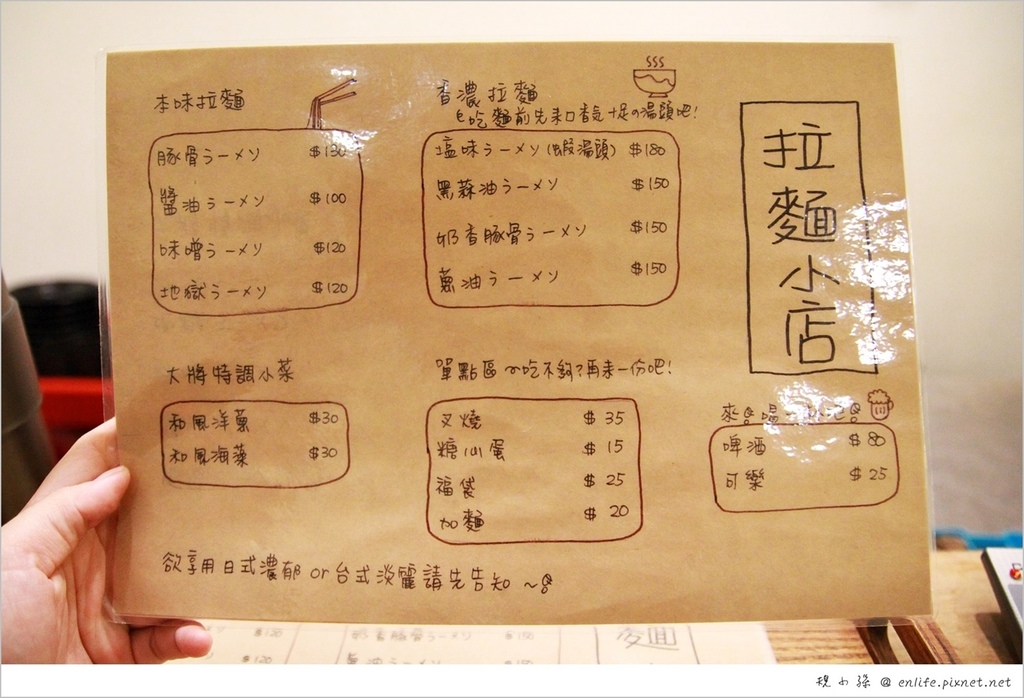 拉麵小店
本味拉麵
豚骨ラーメン $130
醬油ラーメン $100
味噌ラーメン $120
地獄ラーメン $120
香濃拉麵
吃麵前先來口香氣十足の湯頭吧!
塩味ラーメン(蝦湯頭) $180
黑蒜油ラーメン $150
奶香豚骨ラーメン $150
蔥油ラーメン $150
大將特調小菜
和風洋蔥 $30
和風海藻 $30
單點區 吃不夠?再來一份吧!
叉燒 $35
糖心蛋 $15
福袋 $25
加麵 $20
來 喝一杯吧
啤酒 $80
可樂 $25
欲享用日式濃郁 or 台式淡麗請先告知~
$120
奶香豚骨ラーメン $150
麵
$120
蔥油ラーメン $150
@ enlife.pixnet.net